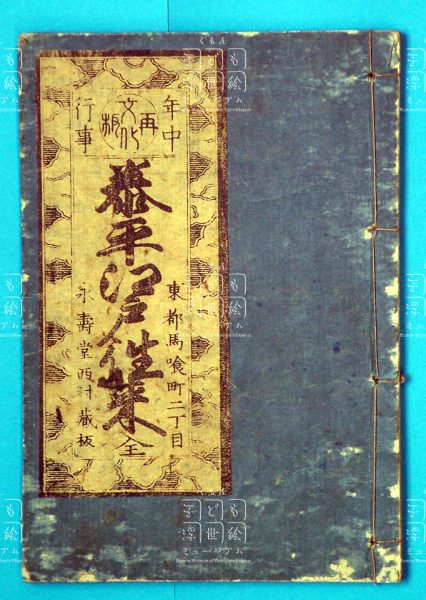 年中
行事
文化
再板
東都馬喰町二丁目
泰平江戸往来 全
永壽堂西村蔵板
くもん
子ども
浮世絵
ミュージアム